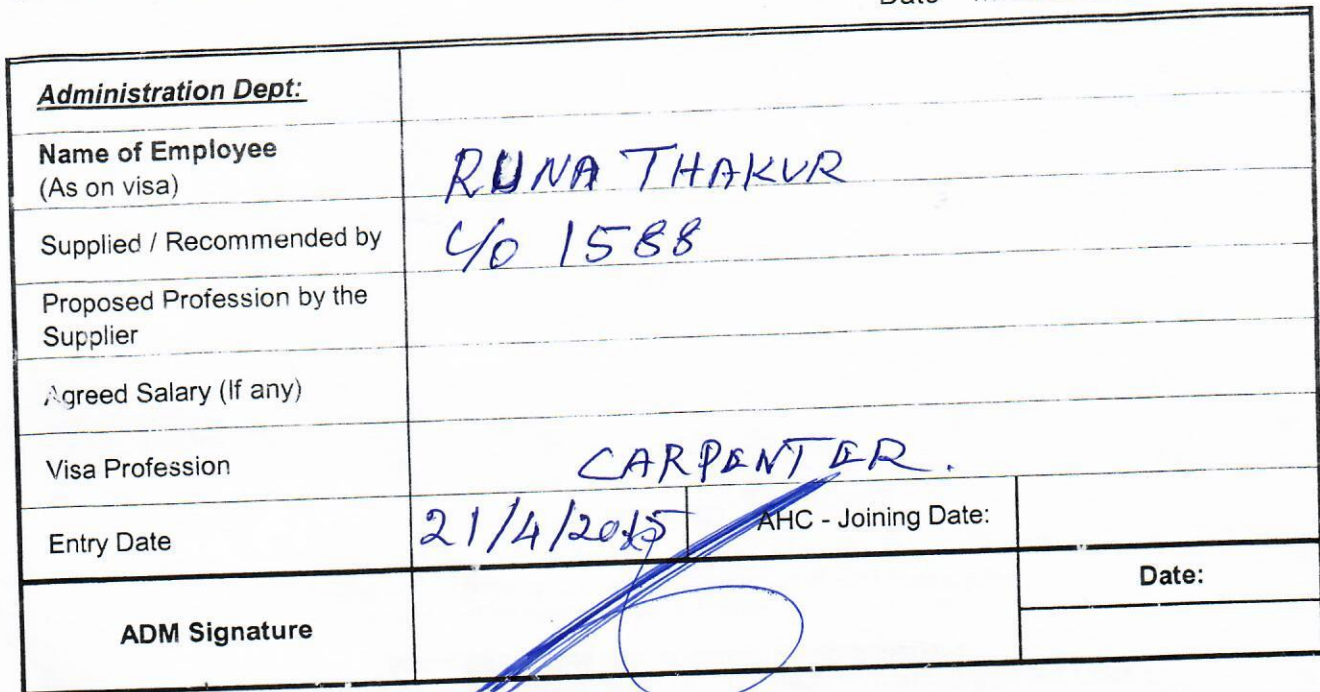 Date
Administration Dept:
Name of Employee
(As on visa)
RUNA THAKUR
Supplied / Recommended by
C/o 1588
Proposed Profession by the
Supplier
Agreed Salary (If any)
Visa Profession
CARPENTER.
Entry Date
21/4/2015
AHC - Joining Date:
ADM Signature
Date: